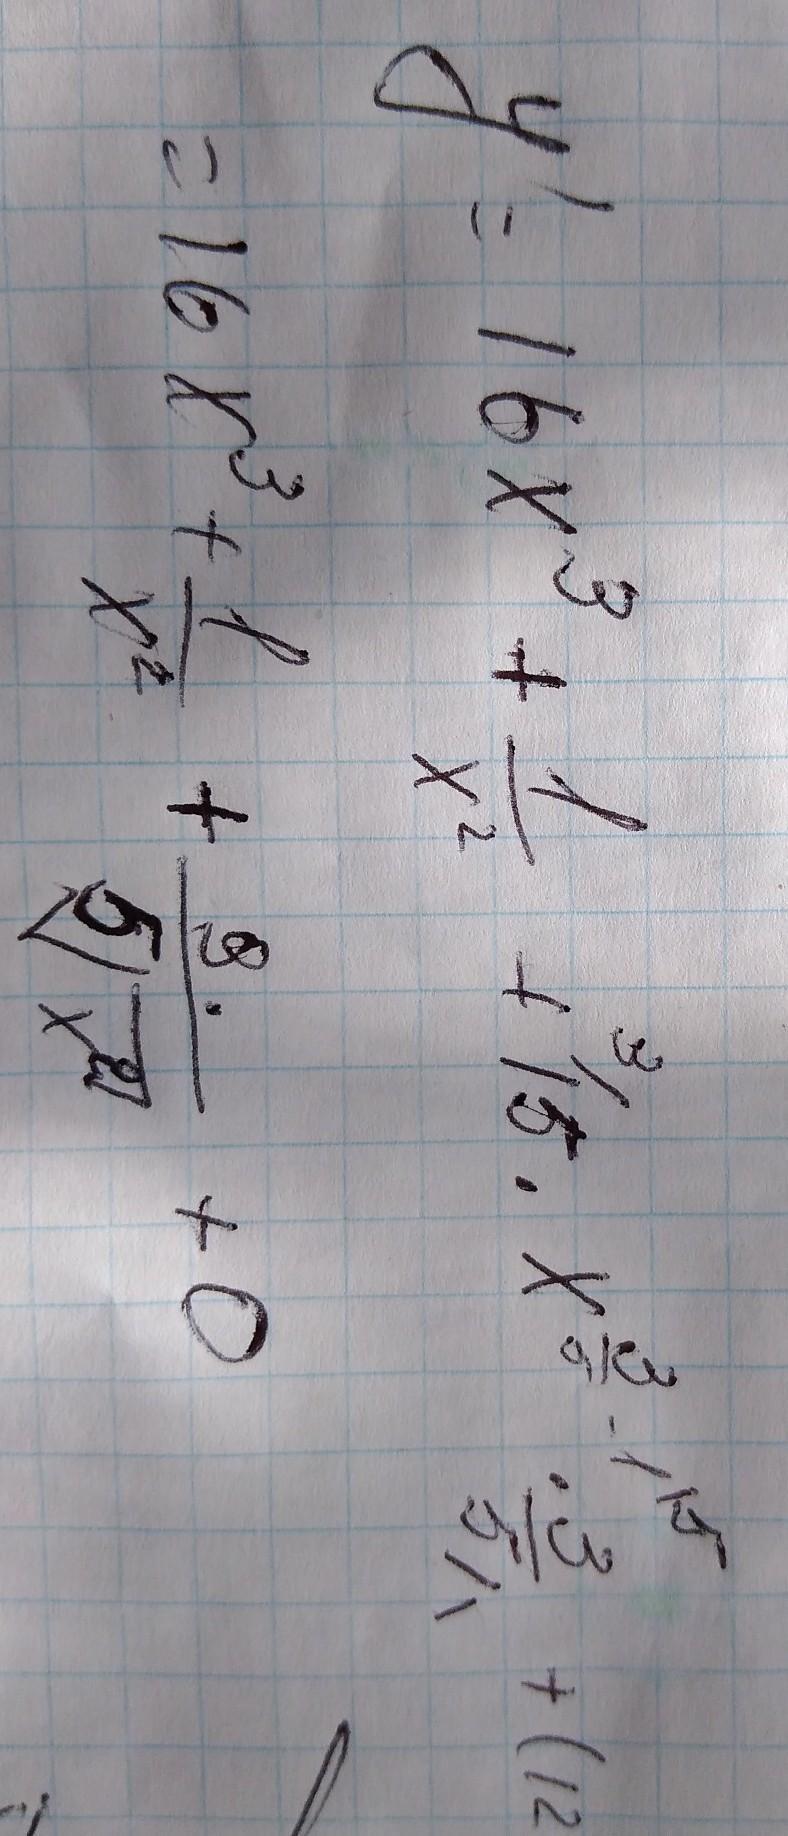 y' = 16x³ + 1/x² + 15³ · x^(3/5 - 1\5) · 3/5\1 + (12
= 16x³ + 1/x² + 9·/⁵√x² + 0